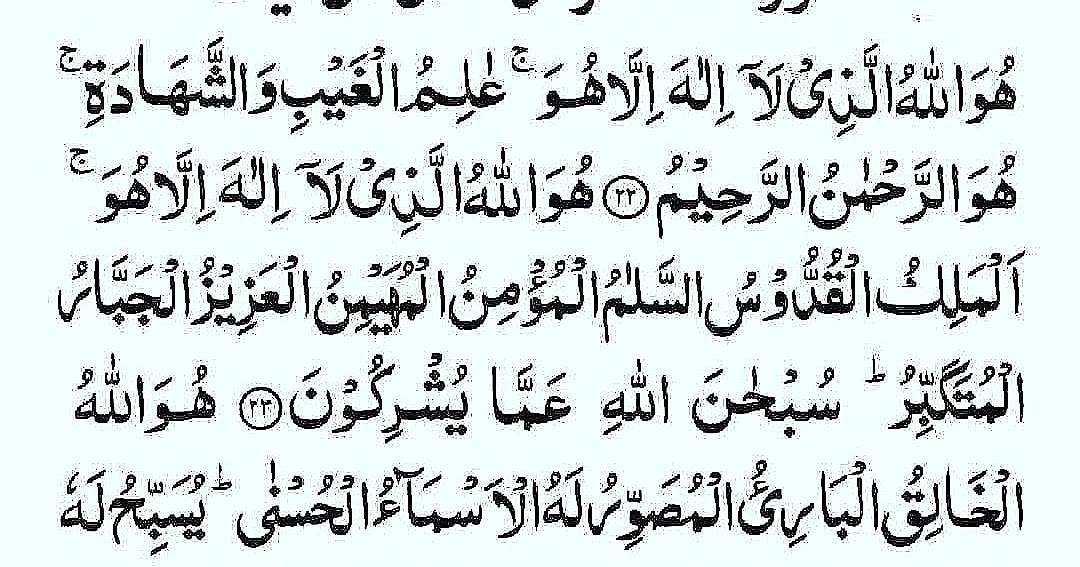 هُوَ اللّٰهُ الَّذِىْ لَآ اِلٰهَ اِلَّا هُوَ ۚ عٰلِمُ الْغَيْبِ وَالشَّهَادَةِ ۚ
هُوَ الرَّحْمٰنُ الرَّحِيْمُ ﴿۲۲﴾ هُوَ اللّٰهُ الَّذِىْ لَآ اِلٰهَ اِلَّا هُوَ ۚ
اَلْمَلِكُ الْقُدُّوْسُ السَّلٰمُ الْمُؤْمِنُ الْمُهَيْمِنُ الْعَزِيْزُ الْجَبَّارُ
الْمُتَكَبِّرُ ؕ سُبْحٰنَ اللّٰهِ عَمَّا يُشْرِكُوْنَ ﴿۲۳﴾ هُوَ اللّٰهُ
الْخَالِقُ الْبَارِئُ الْمُصَوِّرُ لَهُ الْاَسْمَآءُ الْحُسْنٰى ؕ يُسَبِّحُ لَهٗ